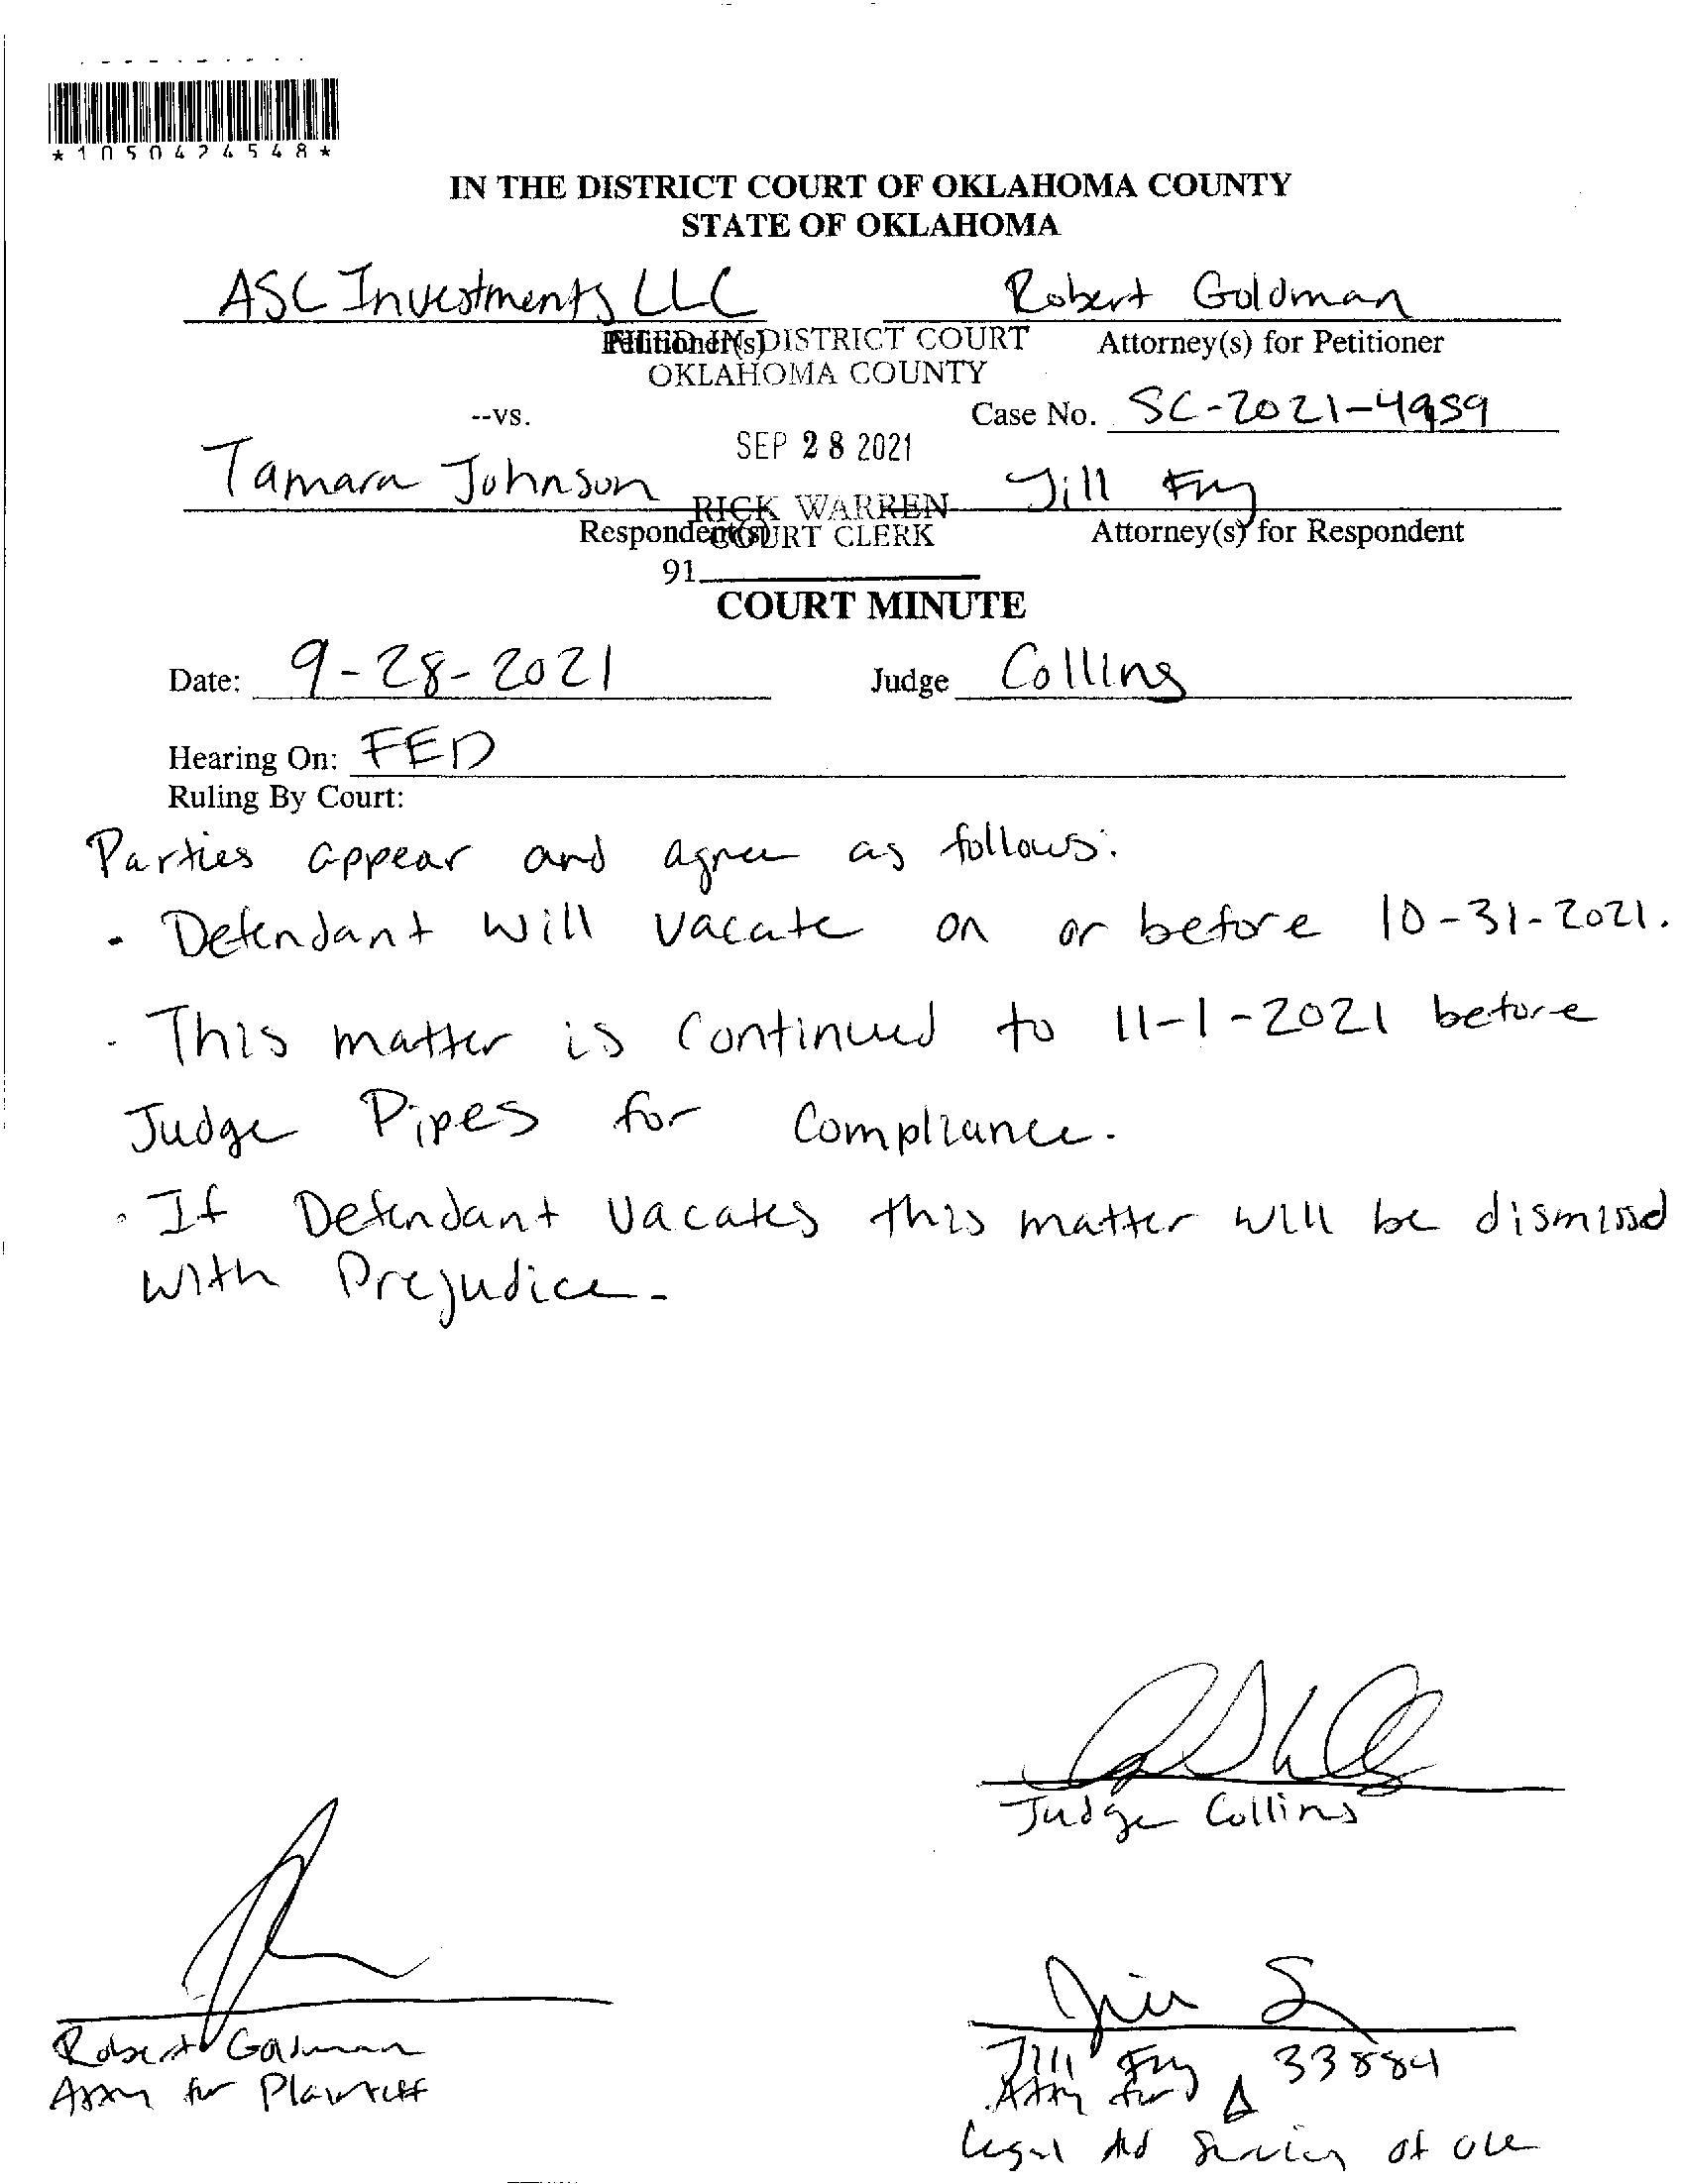 *1050424548*
IN THE DISTRICT COURT OF OKLAHOMA COUNTY
STATE OF OKLAHOMA
ASC Investments LLC
Robert Goldman
Petitioner(s)
FILED IN DISTRICT COURT
Attorney(s) for Petitioner
OKLAHOMA COUNTY
--vs.
Case No. SC-2021-4959
SEP 28 2021
Tamara Johnson
Jill Fry
RICK WARREN
Respondent(s)
COURT CLERK
Attorney(s) for Respondent
91
COURT MINUTE
Date: 9-28-2021
Judge Collins
Hearing On: FED
Ruling By Court:
Parties appear and agree as follows:
- Defendant will vacate on or before 10-31-2021.
- This matter is continued to 11-1-2021 before
Judge Pipes for Compliance.
- If Defendant vacates this matter will be dismissd
with Prejudice.
Judge Collins
Robert Goldman
Attny for Plaintiff
Jill Fry 33884
Attny for Δ
Legal Aid Services of OK